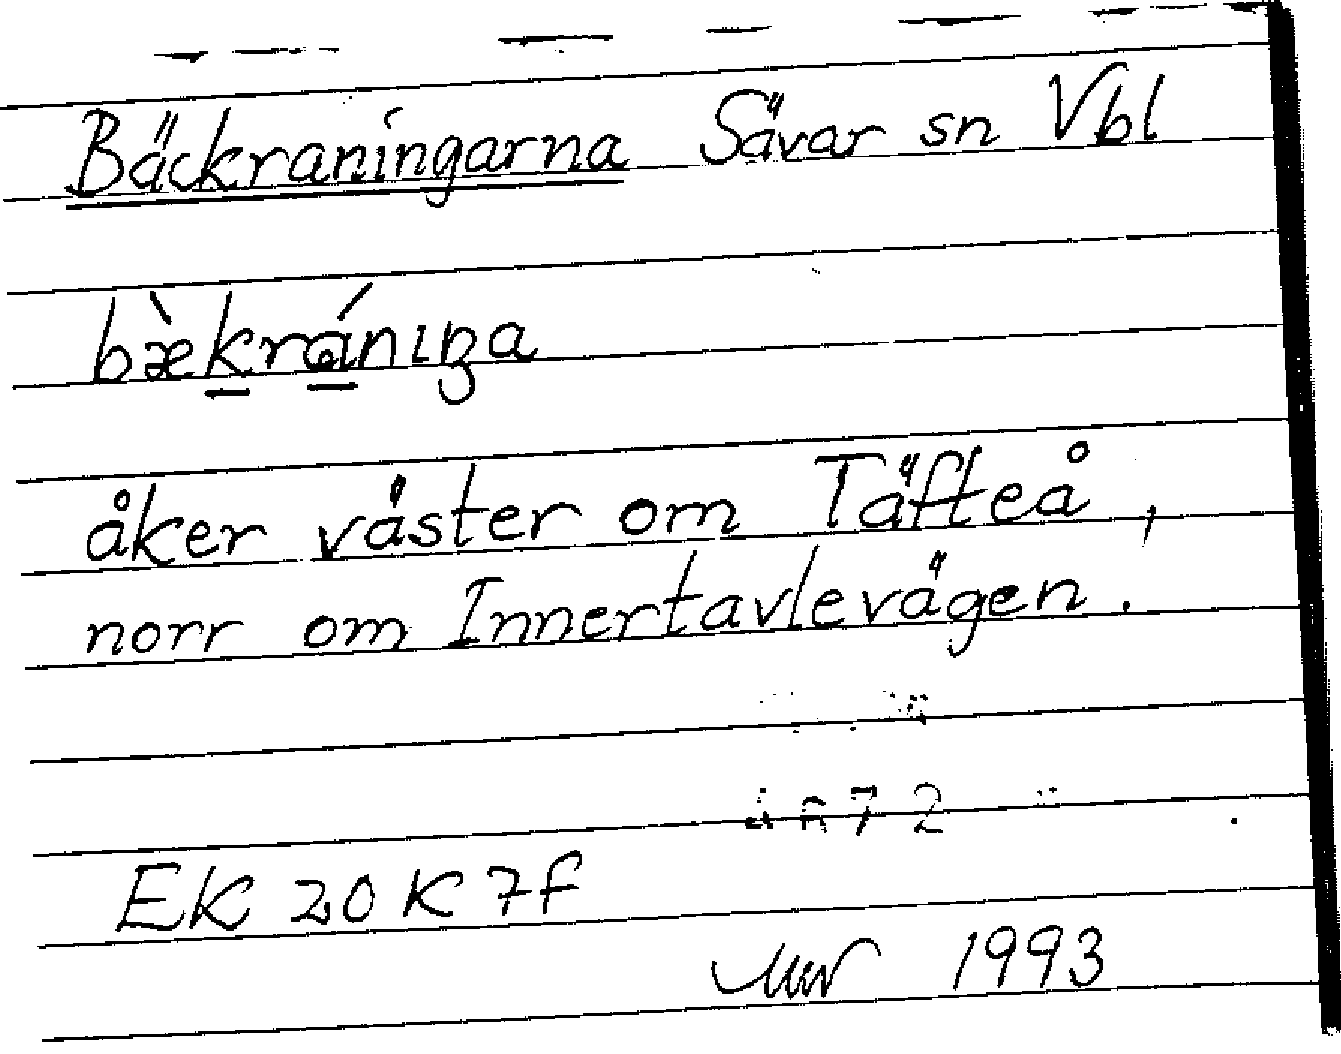 Bäckraningarna Sävar sn Vbl
bæ̀krǻ̱nıŋa
åker väster om Täfteå,
norr om Innertavlevägen.
EK 20 K 7f
1993